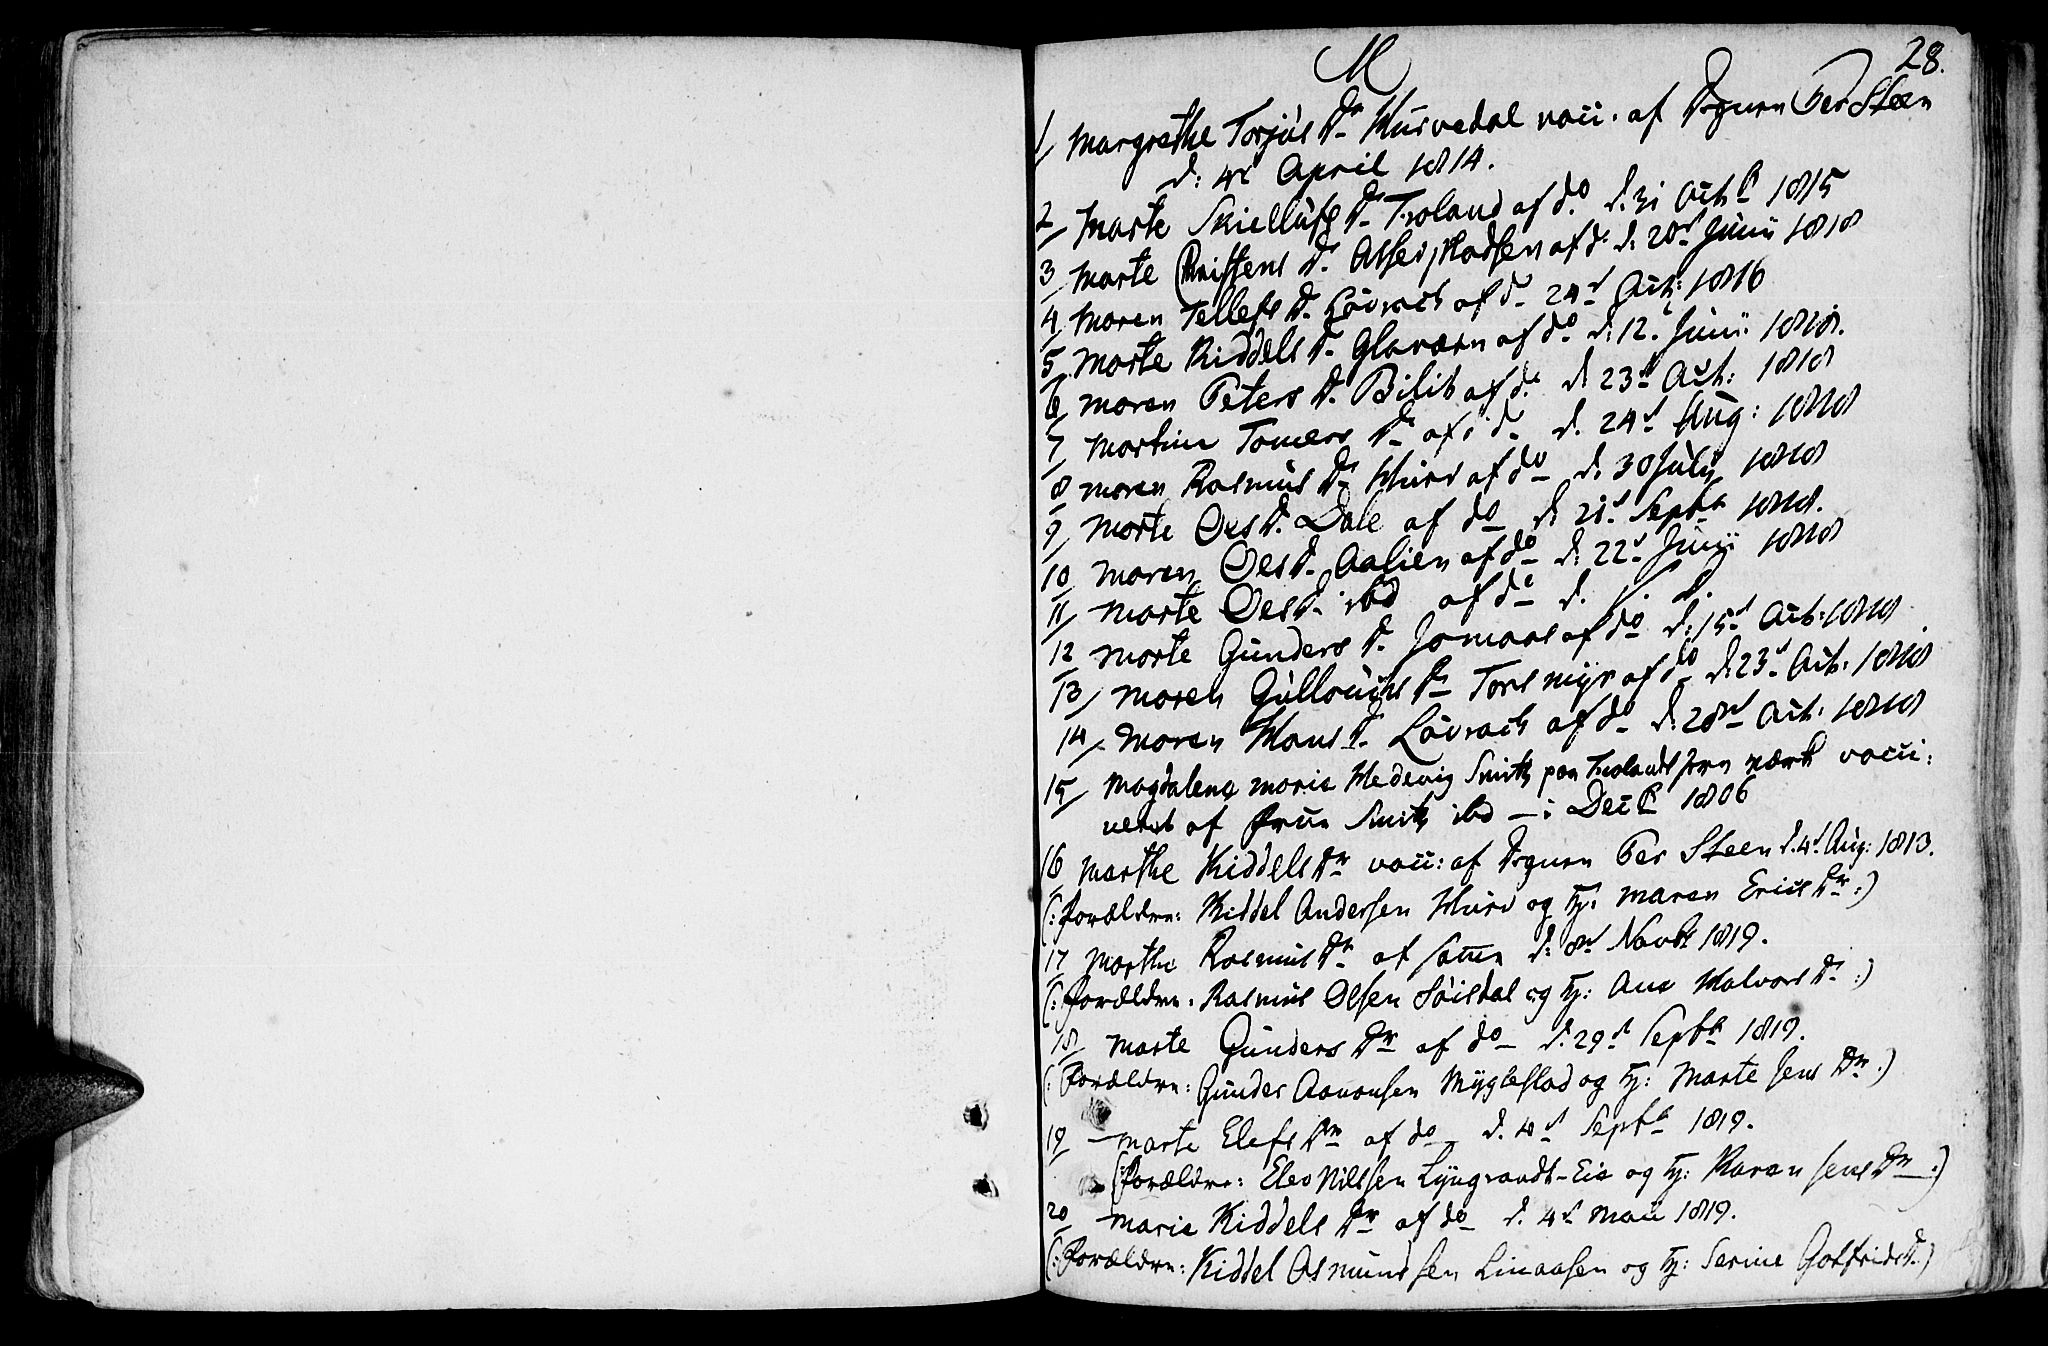 M
28.
1/ Margrethe Torjùs Dr Husvedal vacc. af Degnen Per Steen
d: 4de April 1814.
2/ Marte Skiellufs Dr Froland af do d. 31 Octbr 1815
3/ Marte Christens Dr. af do d. 20d Junii 1818
4/ Maren Tellefs Dr. Løvrach af do 24d Oct: 1816
5/ Marte Kiddels Dr. af do d: 12. Junii 1818.
6/ Maren Peters Dr. af do d. 23d Oct: 1818
7/ Martine Dr af do d. 24d Aug: 1818
8 Maren Rasmus Dr Hurv af do d. 30 July 1818
9/ Marte Oles D. Dale af do d. 21d Septbr 1818.
10 Maren Oles D. af do d: 22d Junii 1818
11/ Marte Oles D. ibd af do d.
12 Marte Gunders D. Jomaas af do d: 15d Oct: 1818
13/ Maren Dr Torsmyr af do d. 23d Oct: 1818
14/ Maren Hans D. Løvrach af do d: 28d Oct: 1818
15/ Magdalena Maria Hedevig Smith paa Frolands Jernværk vacci:
neret af Smith ibd — i Decbr 1806
16 Marthe Kiddels Dr vacc: af Degnen Per Steen d. 4d Aug: 1813.
(: Forældre: Kiddel Andersen Hurv og Hr: Maren Erics Dr :)
17 Marthe Rasmus Dr af samme d: 8d Novbr 1819.
(: Forældre: Rasmus Olsen og Hr: Ane Halvors Dr :)
18/ Marte Gunders Dr af do d. 29d Septbr 1819.
(: Forældre: Gunder Aavonsen Myglestad og Hr: Marte Jens Dr :)
19 Marte Elefs Dr af do d. 4d Septbr 1819.
(: Forældre: Elev Nielsen Lyngraadt-Eie og Hr: Karen Jens Dr :)
20 Marie Kiddels Dr af do d. 4d Maii 1819.
(: Forældre: Kiddel Osmundsen Linaasen og Hr: Serine Gotfrids D. :)